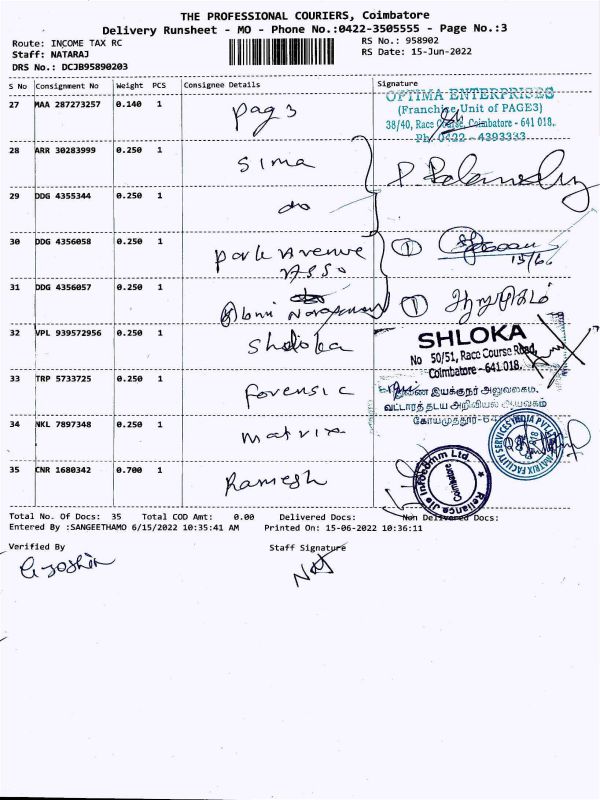 THE PROFESSIONAL COURIERS, Coimbatore
Delivery Runsheet - MO - Phone No.:0422-3505555 - Page No.:3
Route: INCOME TAX RC
RS No.: 958902
Staff: NATARAJ
RS Date: 15-Jun-2022
DRS No.: DCJB95890203
S No Consignment No Weight PCS Consignee Details Signature
27 MAA 287273257 0.140 1 pag 3
OPTIMA ENTERPRISES
(Franchise Unit of PAGE3)
38/40, Race Course, Coimbatore - 641 018.
Ph: 0422 - 4393333
28 ARR 30283999 0.250 1 Sima
29 DDG 4355344 0.250 1 do
30 DDG 4356058 0.250 1 park Avenue
Asso
① 15/6
31 DDG 4356057 0.250 1 Narayanan ① ஆறுமுகம்
32 VPL 939572956 0.250 1 Shloka
SHLOKA
No 50/51, Race Course Road,
Coimbatore - 641 018.
33 TRP 5733725 0.250 1 Forensic
இயக்குநர் அலுவலகம்.
வட்டாரத் தடய அறிவியல் ஆய்வகம்
கோயமுத்தூர்-64
34 NKL 7897348 0.250 1 Matrix
MATRIX FACILITY SERVICES INDIA PVT LTD
35 CNR 1680342 0.700 1 Ramesh
Reliance Jio Infocomm Ltd.
Coimbatore
Total No. Of Docs: 35 Total COD Amt: 0.00 Delivered Docs: Non Delivered Docs:
Entered By :SANGEETHAMO 6/15/2022 10:35:41 AM Printed On: 15-06-2022 10:36:11
Verified By Staff Signature